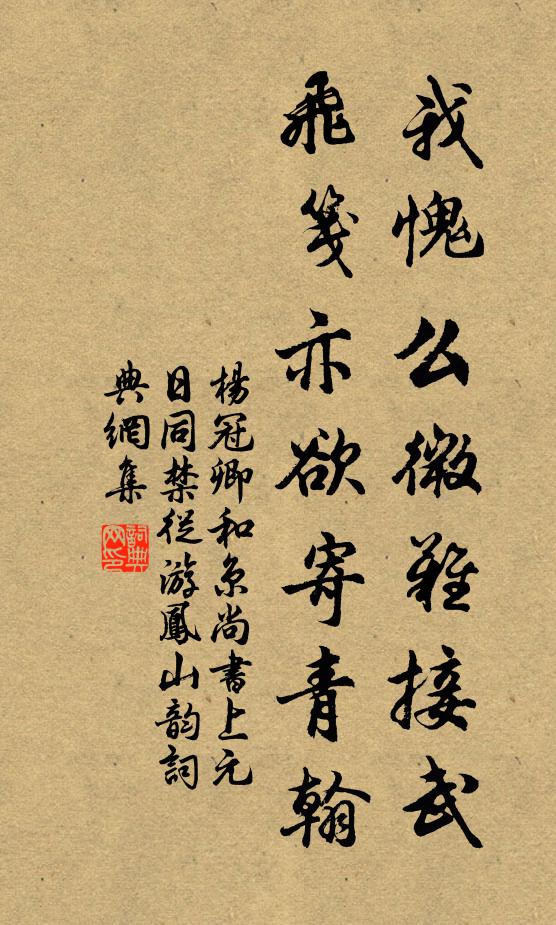 我愧么微難接武
飛箋亦欲寄青翰
楊冠卿和京尚書上元
日同禁從游鳳山韵詞
典網集
詞典
网印